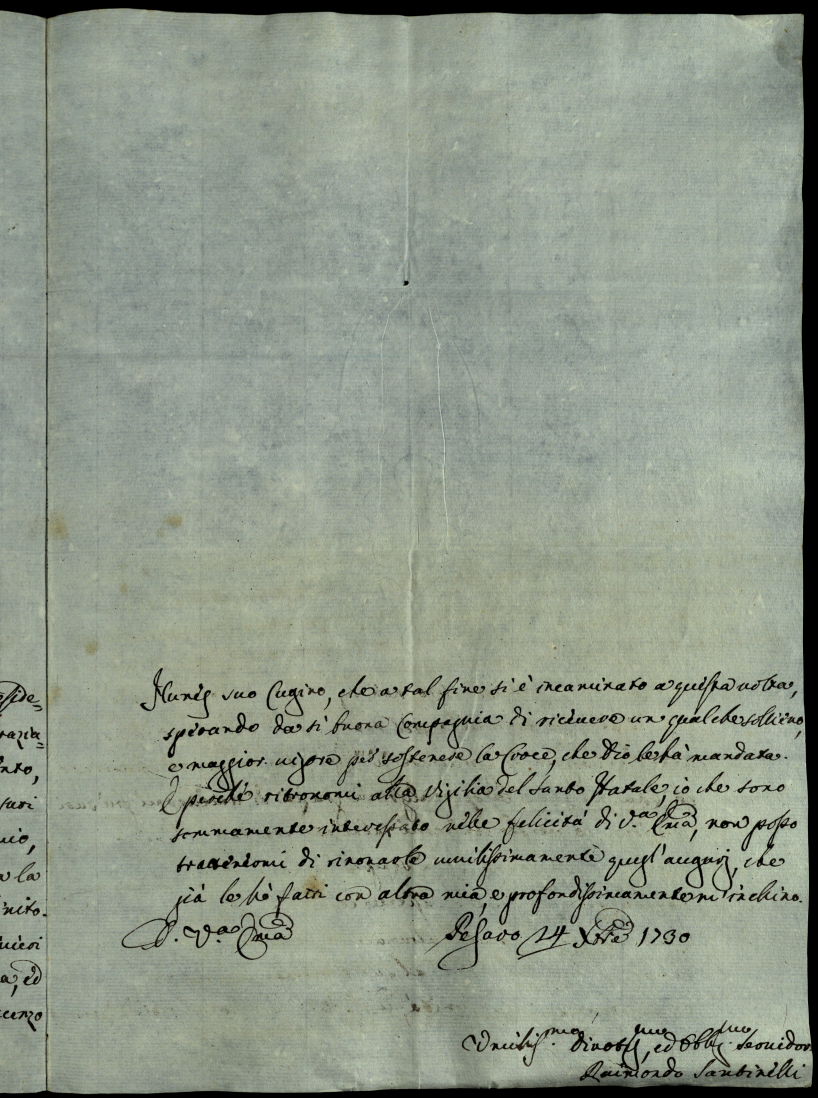 oside=
razia=
nto,
suri
nio,
a la
nito.
nieri
a, ed
cenzo
Nunez suo Cugino, che a tal fine si è incaminato a questa volta,
sperando da sì buona Compagnia di ricevere un qualche sollievo,
e maggior vigore per sostenere la Croce, che Dio le hà mandata.
E perché ritrovomi alla Vigilia del Santo Natale, io che sono
sommamente interessato nelle felicità di V.ª Em̃a, non posso
trattenermi di rinovarle umilissimamente quegl'augurj, che
già le hò fatti con altra mia, e profondissimamente m'inchino.
D. V.ª Em̃a Pesaro 24 Xbre 1730
Umilis.mo Divotis.mo, ed Obblig.mo Servidor
Raimondo Santinelli